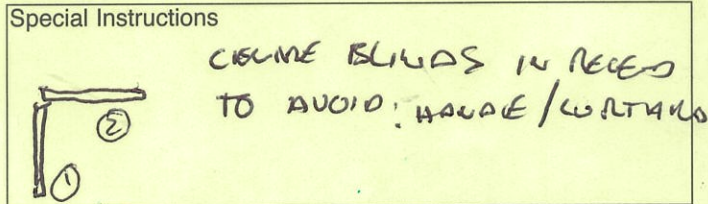 Special Instructions
BLINDS IN RECESS
TO AVOID: HANDLE / CURTAINS
②
①